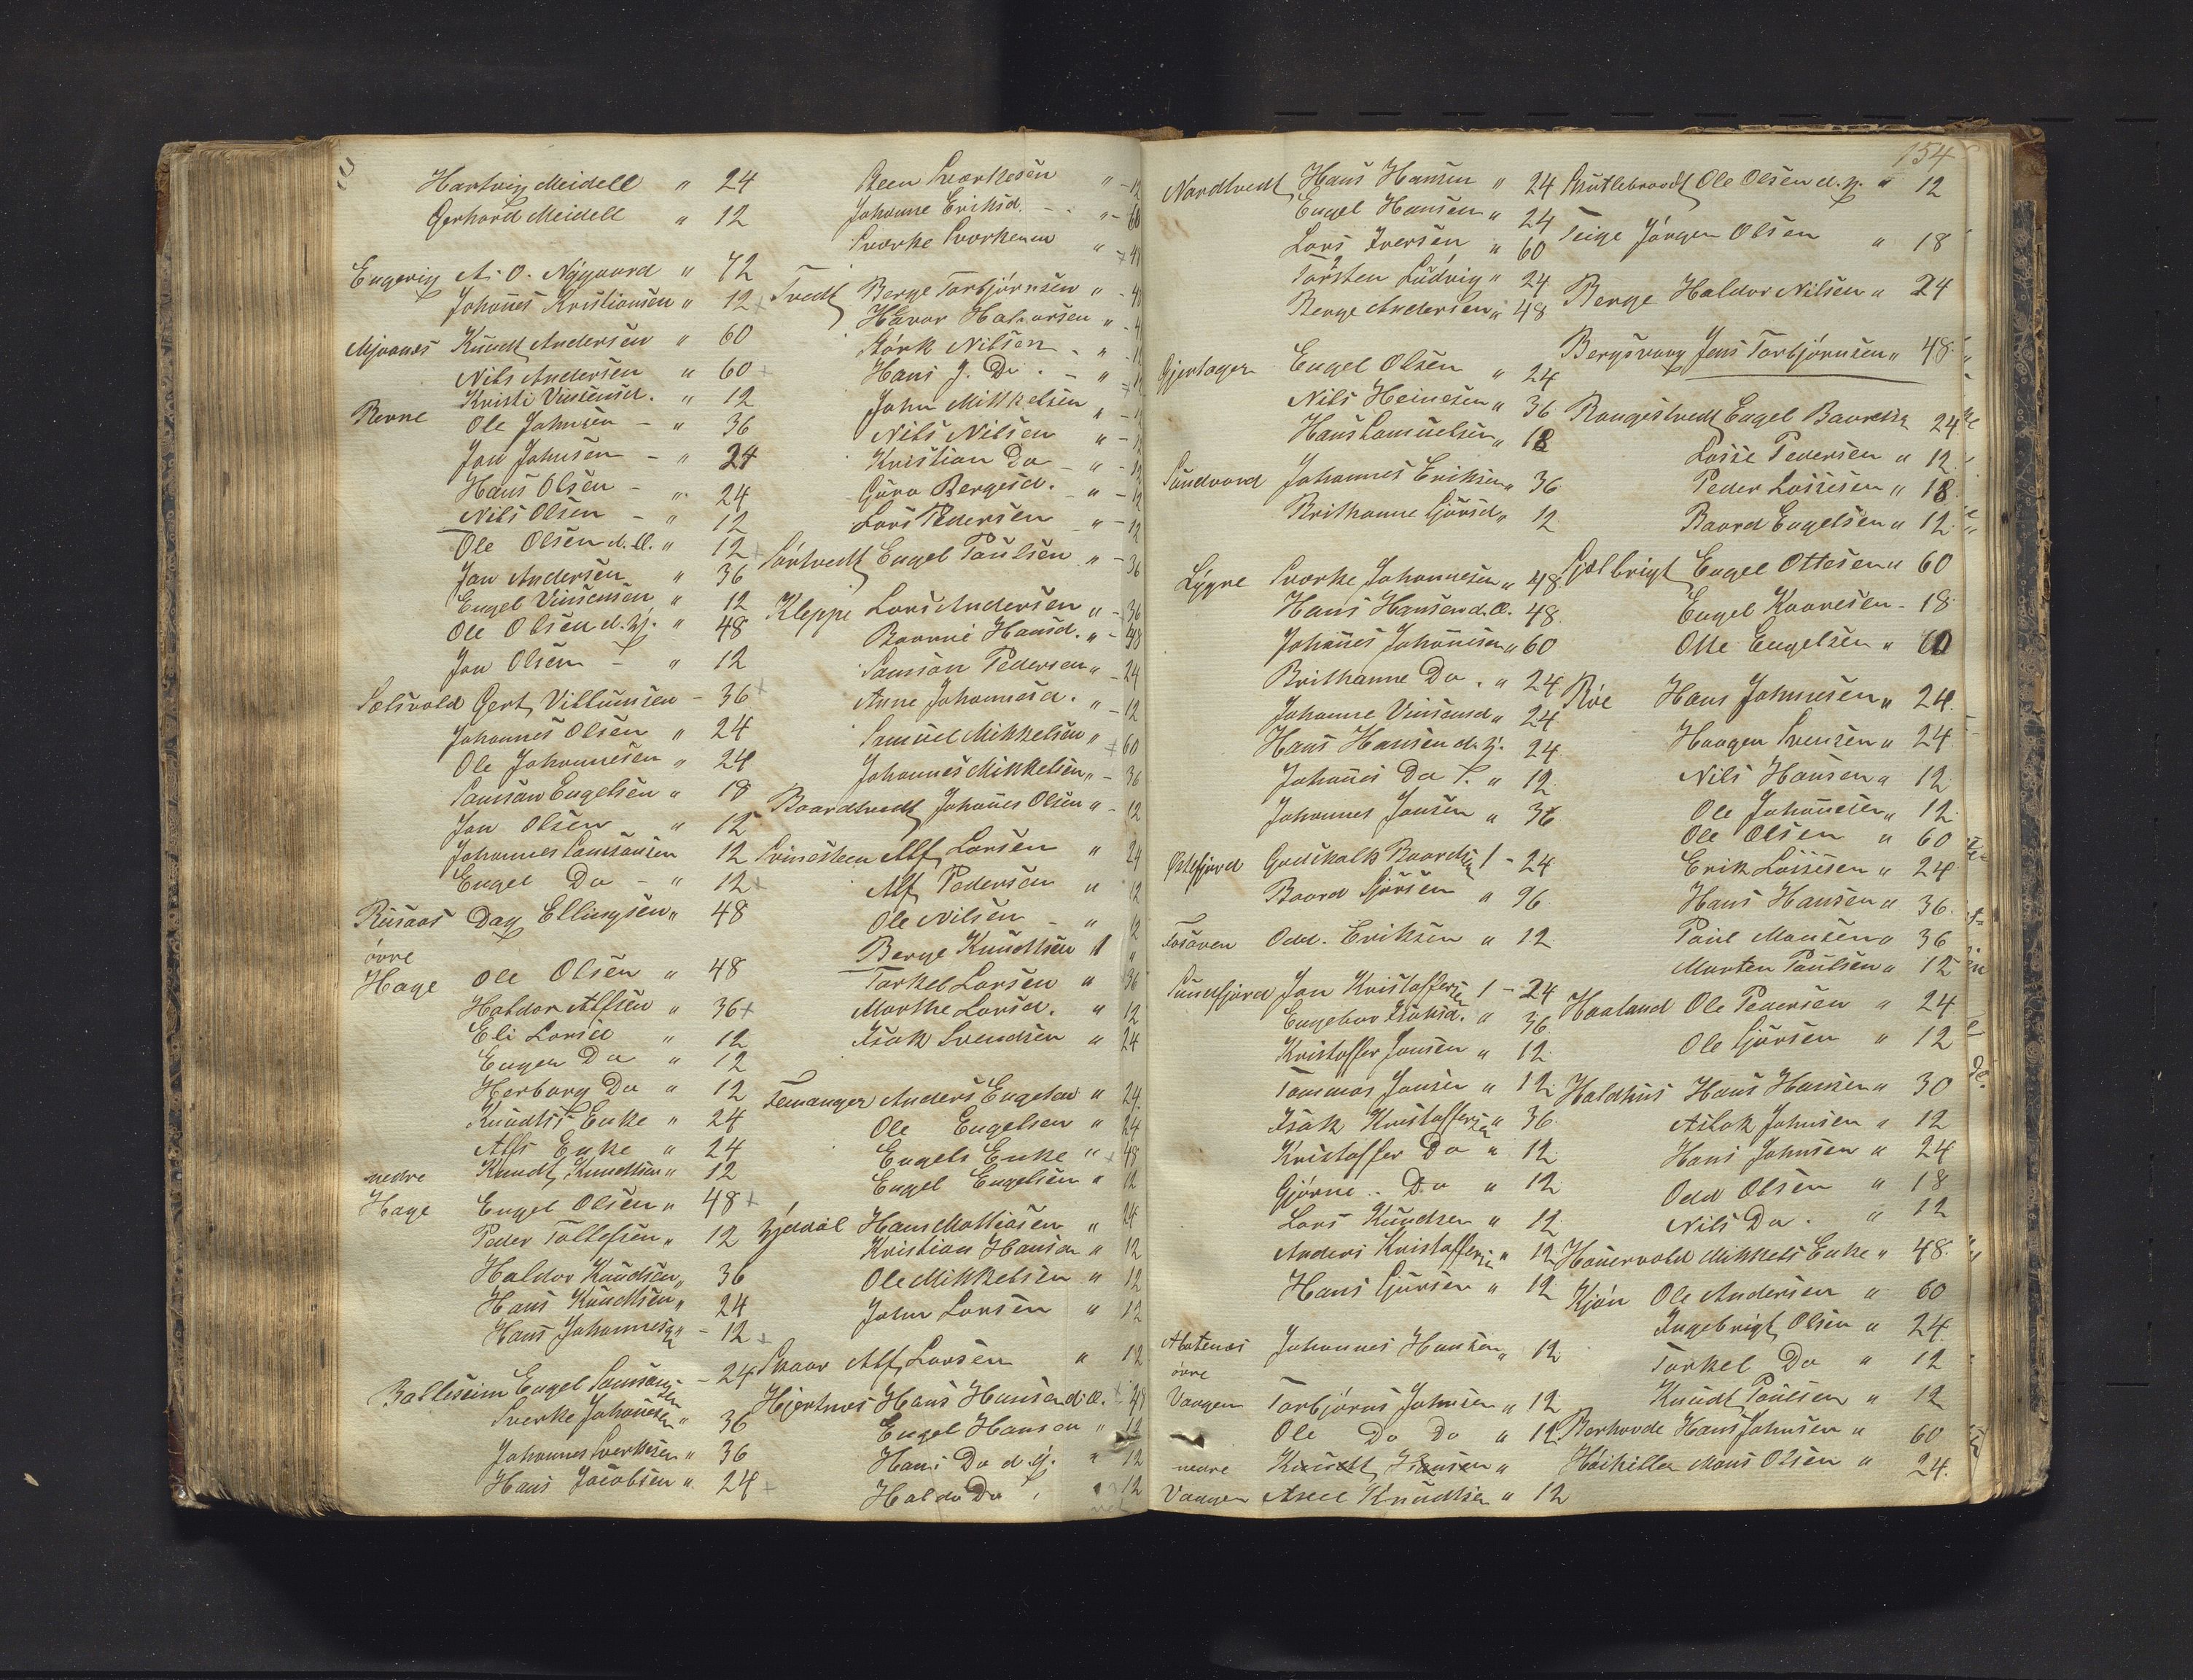 Hartvig Meidell " 24
Gerhard Meidell " 12
Engevig A. O. Nygaard " 72
Johanes Kristiansen " 12
Mjaanes Knudt Andersen " 60
Nils Andersen " 60
Kristi Vinsensd. " 12
Revne Ole Johnsen - " 36
Jon Johnsen - " 24
Hans Olsen - " 24
Nils Olsen - " 12
Ole Olsen d. Æ. " 12
Jan Andersen " 36
Engel Vinsensen " 12
Ole Olsen d. y. " 48
Jon Olsen - " 12
Sælsvold Gert Villumsen - 36
Johannes Olsen " 24
Ole Johannesen " 24
Samson Engelsen " 18
Jon Olsen " 12
Johannes Samsonsen 12
Engel Do - " 12
Riisaas Dag Ellingsen " 48
øvre
Hage Ole Olsen " 48
Haldor Alfsen " 36
Eli Larsd " 12
Engen Do " 12
Herborg Do " 12
Knudts Enke " 24
Alfs Enke " 24
nedre Knudt Knudtsen " 12
Hage Engel Olsen " 48
Peder Tollefsen " 12
Haldor Knudsen " 36
Hans Knudtsen " 24
Hans Johannesen - 12
Balleseim Engel Samsonsen - 24
Sverke Johanesen " 36
Johannes Sverkesen " 36
Hans Jacobsen " 24
Been Sværkesen " - 12
Johanne Eriksd. - " - 60
Sværke Sværkesen " 48
Tvedt Berge Torbjørnsen "
Størk Nilsen - "
Hans J. Do. - "
John Mikkelsen "
Nils Nilsen " - 12
Kristian Do - " - 12
Gøro Bergesd. - " - 12
Lars Pedersen " - 12
Sørtvedt Engel Paulsen " - 36
Kleppe Lars Andersen " - 36
Hansd. " - 48
Samson Pedersen " - 24
Anne Johannesd. " - 12
Samuel Mikkelsen " 60
Johannes Mikkelsen " - 36
Baardtvedt Johanes Olsen " - 12
Svinesteen Alf Larsen " 24
Alf Pedersen " 12
Ole Nilsen - " 12
Berge Knudtsen 1 "
Torkel Larsen " 36
Marthe Larsd. " 12
Isak Svendsen " 24
Femanger Anders Engelsen " 24
Ole Engelsen " 24
Engels Enke " 48
Engel Engelsen " 12
Hans Mathiasen " 24
Kristian Hansen " 12
Ole Mikkelsen " 12
John Larsen " 12
Skaar Alf Larsen " 12
Hjertnes Hans Hansen d. Æ. 48
Engel Hansen " 12
Hans Do d. y. " 12
Haldo Do " 12
154
Nordtvedt Hans Hansen " 24
Engel Hansen " 24
Lars Iversen " 60
Torsten Ludvig " 24
Berge Andersen " 48
Gjertager Engel Olsen " 24
Nils Heinesen " 36
Hans Samuelsen " 18
Sundvord Johannes Eriksen " 36
Brithanne Gjørsd " 12
Lygre Sværke Johannesen " 48
Hans Hansen d. Æ. 48
Johanes Johanesen " 60
Brithanne Do. " 24
Johanne Vinsensd " 24
Hans Hansen d. y. 24
Johanes Do S. " 12
Johannes Jansen " 36
Østefjord Godskalk Baardsen 1 - 24
Baard Gjørsen " 96
Fosaven Odd. Eriksen " 12
Sundfjord Jon Kristoffersen 1 - 24
Engebor Isaksd. " 36
Kristoffer Jonsen " 12
Tommas Jonsen " 12
Isak Kristoffersen " 36
Kristoffer Do " 12
Gjørne Do " 12
Lars Knudsen " 12
Anders Kristoffersen " 12
Hans Gjørsen " 12
Johannes Hansen " 12
øvre
Vaagen Torbjørns Johnsen " 12
Ole Do Do " 12
nedre Knudt Hansen "
Vaagen Axel Knudtsen " 12
Ole Olsen d. y. " 12
Teige Jørgen Olsen " 18
Berge Haldor Nilsen " 24
Bergsvaag Jens Torbjørnsen " 48
Raagestvedt Engel Baardsen 24
Lasse Pedersen " 12
Peder Lassesen " 18
Baard Engelsen " 12
Sjælbrigt Engel Ottesen " 60
Engel Kaaresen - 18
Otte Engelsen " 60
Røe Hans Johnnesen " 24
Haagen Svensen " 24
Nils Hansen " 12
Ole Johanesen " 12
Ole Olsen " 60
Erik Lassesen " 24
Hans Hansen " 36
Paul Monsen " 36
Morten Paulsen " 12
Haaland Ole Pedersen " 24
Ole Gjørsen " 12
Haldhus Hans Hansen " 30
Aslak Johnsen " 12
Hans Johnsen " 24
Odd Olsen " 18
Nils Do. " 12
Hauervold Mikkels Enke " 48
Kjøn Ole Andersen " 60
Ingebrigt Olsen " 24
Torkel Do " 12
Knudt Poulsen " 12
Berhovde Hans Johnsen " 60
Høikilla Mons Olsen " 24